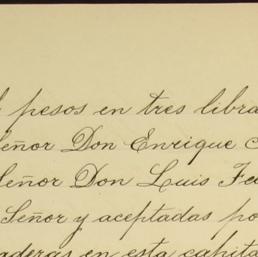 pesos en tres libra
Señor Don Enrique
Señor Don Luis Fe
Señor y aceptadas po
aderas en esta capita